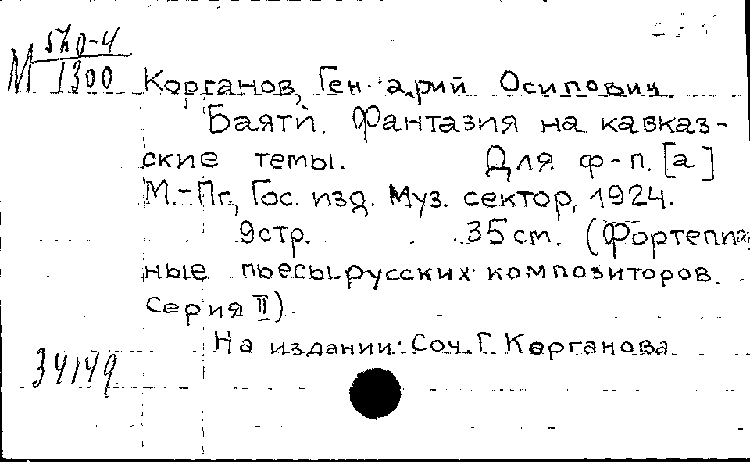 М 570-4
1300
Корганов, Ген арий Осипович.
Баяти. Фантазия на кавказ-
ские темы. Для ф-п. [а]
М.-Пг., Гос. изд. Муз. сектор, 1924.
9стр. 35 см. (Фортепиан
ные пьесы русских композиторов.
Серия II).
На издании: Соч. Г. Корганова
34149